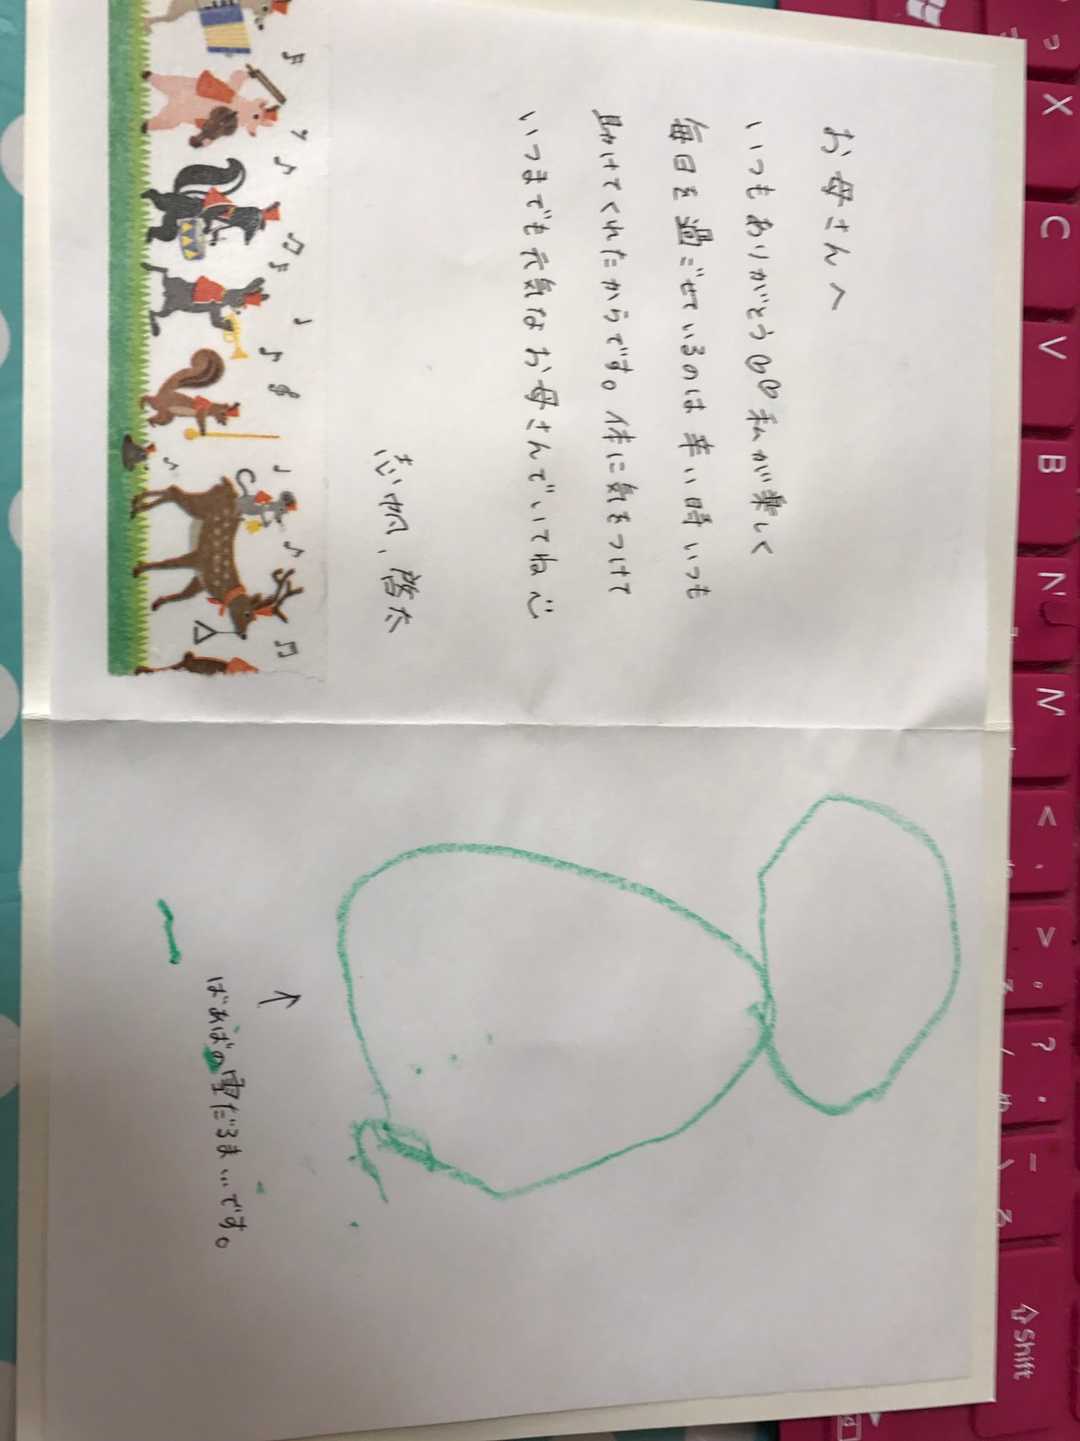 お母さんへ
いつもありがとう♡♡私が楽しく
毎日を過ごせているのは辛い時いつも
助けてくれたからです。体に気をつけて
いつまでも元気なお母さんでいてね♡
志帆、啓太
↑
ばぁばの雪だるま…です。
X
C
V
B
N
M
<
、
>
。
?
・
め
ろ
⇧Shift